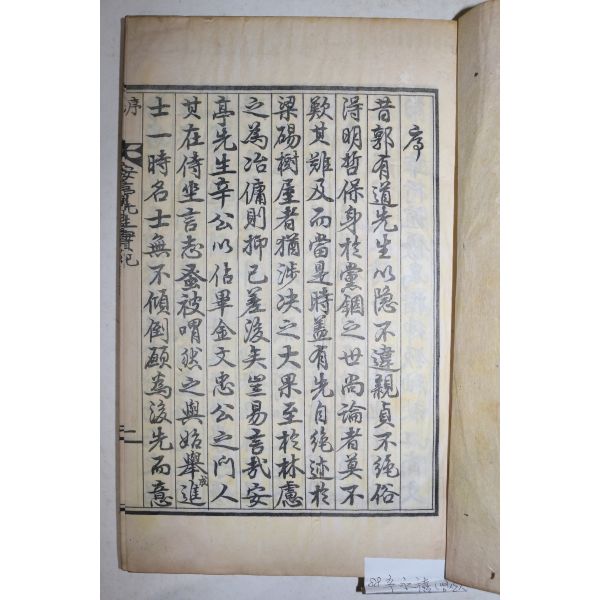 序
昔郭有道先生以隐不違親貞不絶俗
得明哲保身於黨錮之世尚論者莫不
歎其難及而當是時盖有先自絶迹於
梁碭樹屋者猶涉决之大果至於林慮
之為冶傭則抑已差後矣豈易言哉安
亭先生辛公以佔畢金文忠公之門人
其在侍坐言志蚤被喟然之與始舉成進
士一時名士無不傾倒願為後先而意
序
安亭先生實紀
一